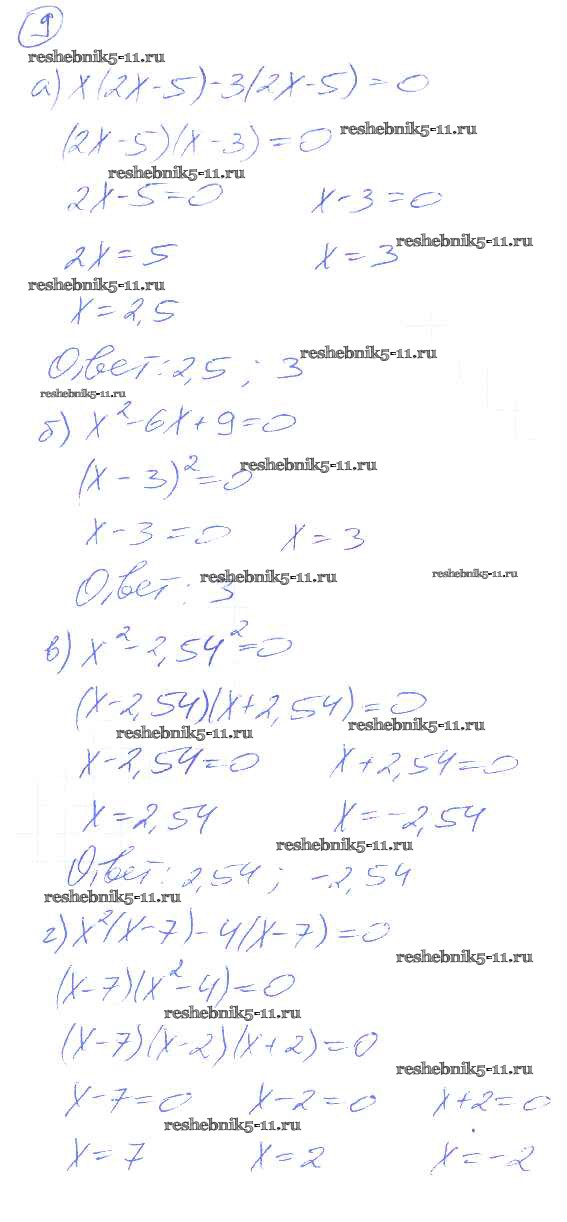 9
reshebnik5-11.ru
а) x(2x-5)-3(2x-5)=0
(2x-5)(x-3)=0 reshebnik5-11.ru
reshebnik5-11.ru
2x-5=0 x-3=0
2x=5 x=3 reshebnik5-11.ru
reshebnik5-11.ru
x=2,5
Ответ: 2,5 ; 3 reshebnik5-11.ru
reshebnik5-11.ru
б) x²-6x+9=0
(x-3)²=0 reshebnik5-11.ru
x-3=0 x=3
Ответ: 3 reshebnik5-11.ru reshebnik5-11.ru
в) x²-2,54²=0
(x-2,54)(x+2,54)=0
reshebnik5-11.ru reshebnik5-11.ru
x-2,54=0 x+2,54=0
x=2,54 x=-2,54
reshebnik5-11.ru
Ответ: 2,54 ; -2,54
reshebnik5-11.ru
г) x²(x-7)-4(x-7)=0
reshebnik5-11.ru
(x-7)(x²-4)=0
reshebnik5-11.ru
(x-7)(x-2)(x+2)=0
reshebnik5-11.ru
x-7=0 x-2=0 x+2=0
reshebnik5-11.ru
x=7 x=2 x=-2